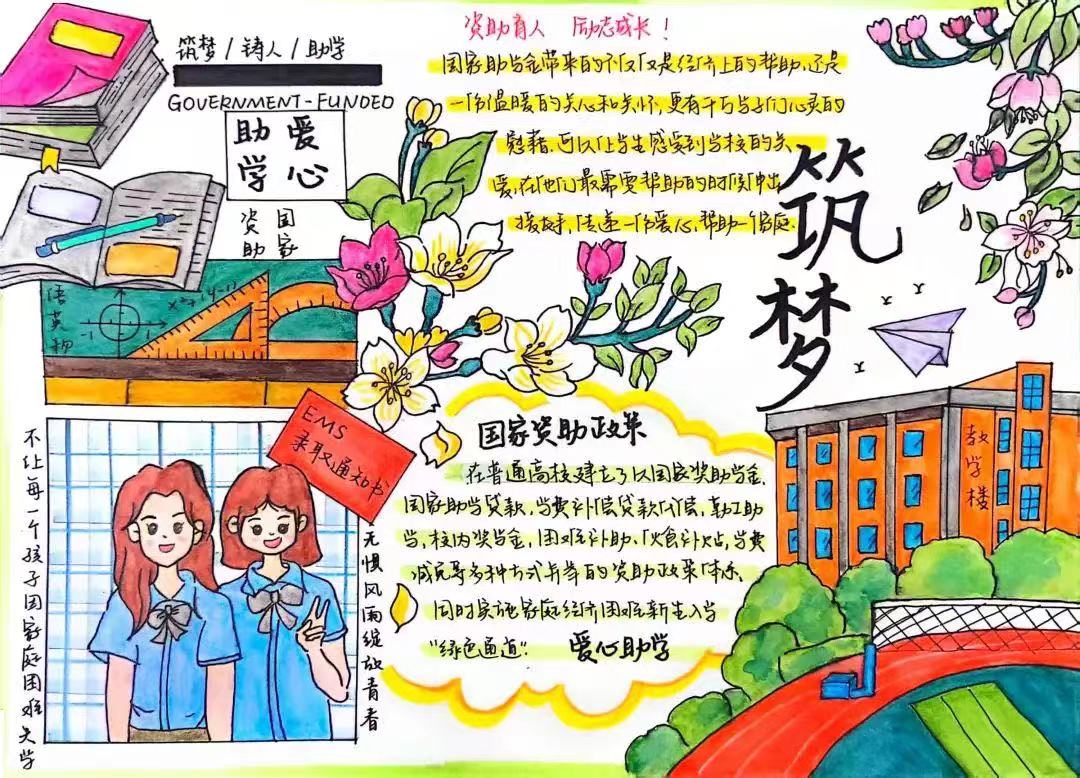 资助育人 励志成长!
筑梦/铸人/助学
GOVERNMENT-FUNDED
爱心
助学
国家
资助
国家助学金带来的不仅仅是经济上的帮助,还是
一份温暖的关心和关怀,更有千万学子们心灵的
慰藉,可以让学生感受到学校的关
爱,在他们最需要帮助的时候伸出
援助手,传递一份爱心,帮助一个家庭.
筑梦
语
英
物
EMS
录取通知书
国家资助政策
在普通高校建立了以国家奖助学金,
国家助学贷款,学费补偿贷款代偿,勤工助
学,校内奖学金,困难补助,伙食补贴,学费
减免等多种方式并举的资助政策体系。
同时实施家庭经济困难新生入学
"绿色通道".
爱心助学
教学楼
不让每一个孩子因家庭困难失学
无惧风雨绽放青春